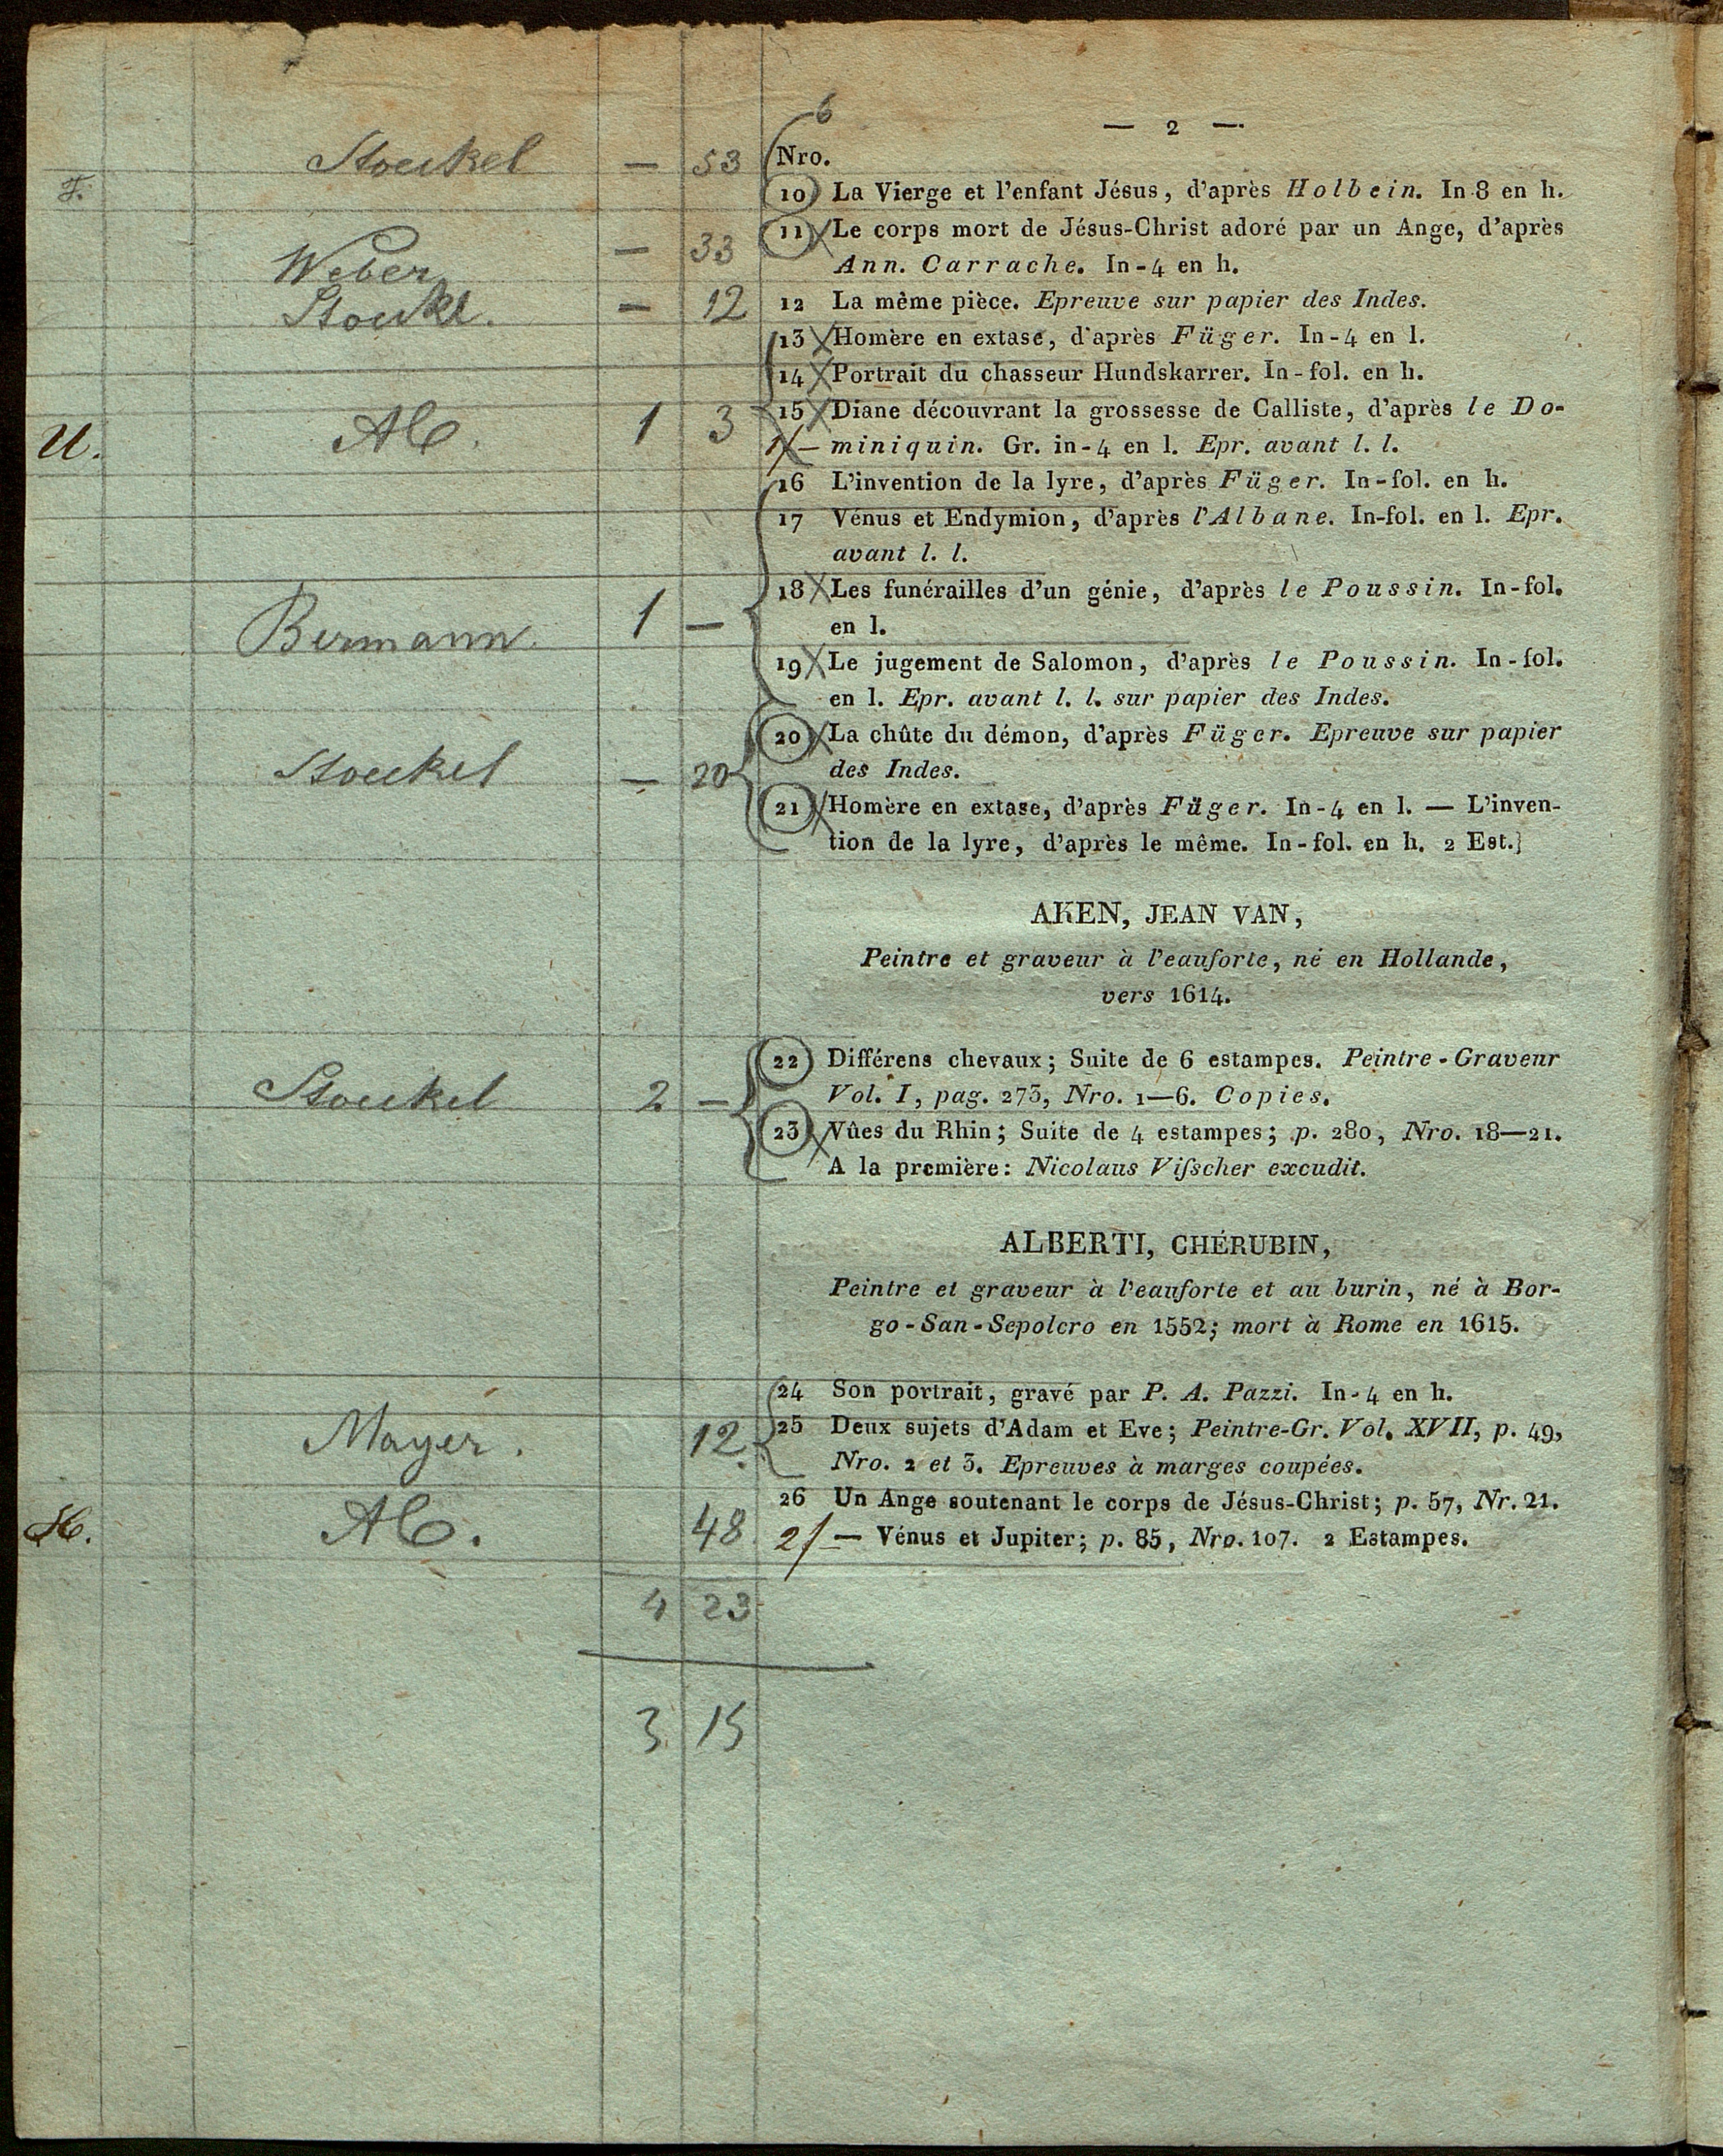 6
— 2 —
Stoeckel — 53 Nro.
F.
10 La Vierge et l'enfant Jésus, d'après Holbein. In-8 en h.
Weber — 33 11 Le corps mort de Jésus-Christ adoré par un Ange, d'après
Ann. Carrache. In-4 en h.
Stoeckl. — 12 12 La même pièce. Epreuve sur papier des Indes.
13 Homère en extase, d'après Füger. In-4 en l.
14 Portrait du chasseur Hundskarrer. In-fol. en h.
U. 1 3 15 Diane découvrant la grossesse de Calliste, d'après le Do-
1/— miniquin. Gr. in-4 en l. Epr. avant l. l.
16 L'invention de la lyre, d'après Füger. In-fol. en h.
17 Vénus et Endymion, d'après l'Albane. In-fol. en l. Epr.
avant l. l.
18 Les funérailles d'un génie, d'après le Poussin. In-fol.
Bermann. 1 — en l.
19 Le jugement de Salomon, d'après le Poussin. In-fol.
en l. Epr. avant l. l. sur papier des Indes.
20 La chûte du démon, d'après Füger. Epreuve sur papier
Stoeckel — 20 des Indes.
21 Homère en extase, d'après Füger. In-4 en l. — L'inven-
tion de la lyre, d'après le même. In-fol. en h. 2 Est.
AKEN, JEAN VAN,
Peintre et graveur à l'eauforte, né en Hollande,
vers 1614.
22 Différens chevaux; Suite de 6 estampes. Peintre-Graveur
Stoeckel 2 — Vol. I, pag. 273, Nro. 1—6. Copies.
23 Vûes du Rhin; Suite de 4 estampes; p. 280, Nro. 18—21.
A la première: Nicolaus Viſscher excudit.
ALBERTI, CHÉRUBIN,
Peintre et graveur à l'eauforte et au burin, né à Bor-
go-San-Sepolcro en 1552; mort à Rome en 1615.
24 Son portrait, gravé par P. A. Pazzi. In-4 en h.
Mayer. 12. 25 Deux sujets d'Adam et Eve; Peintre-Gr. Vol. XVII, p. 49,
Nro. 2 et 3. Epreuves à marges coupées.
26 Un Ange soutenant le corps de Jésus-Christ; p. 57, Nr. 21.
48 2/— Vénus et Jupiter; p. 85, Nro. 107. 2 Estampes.
4 23
3 15